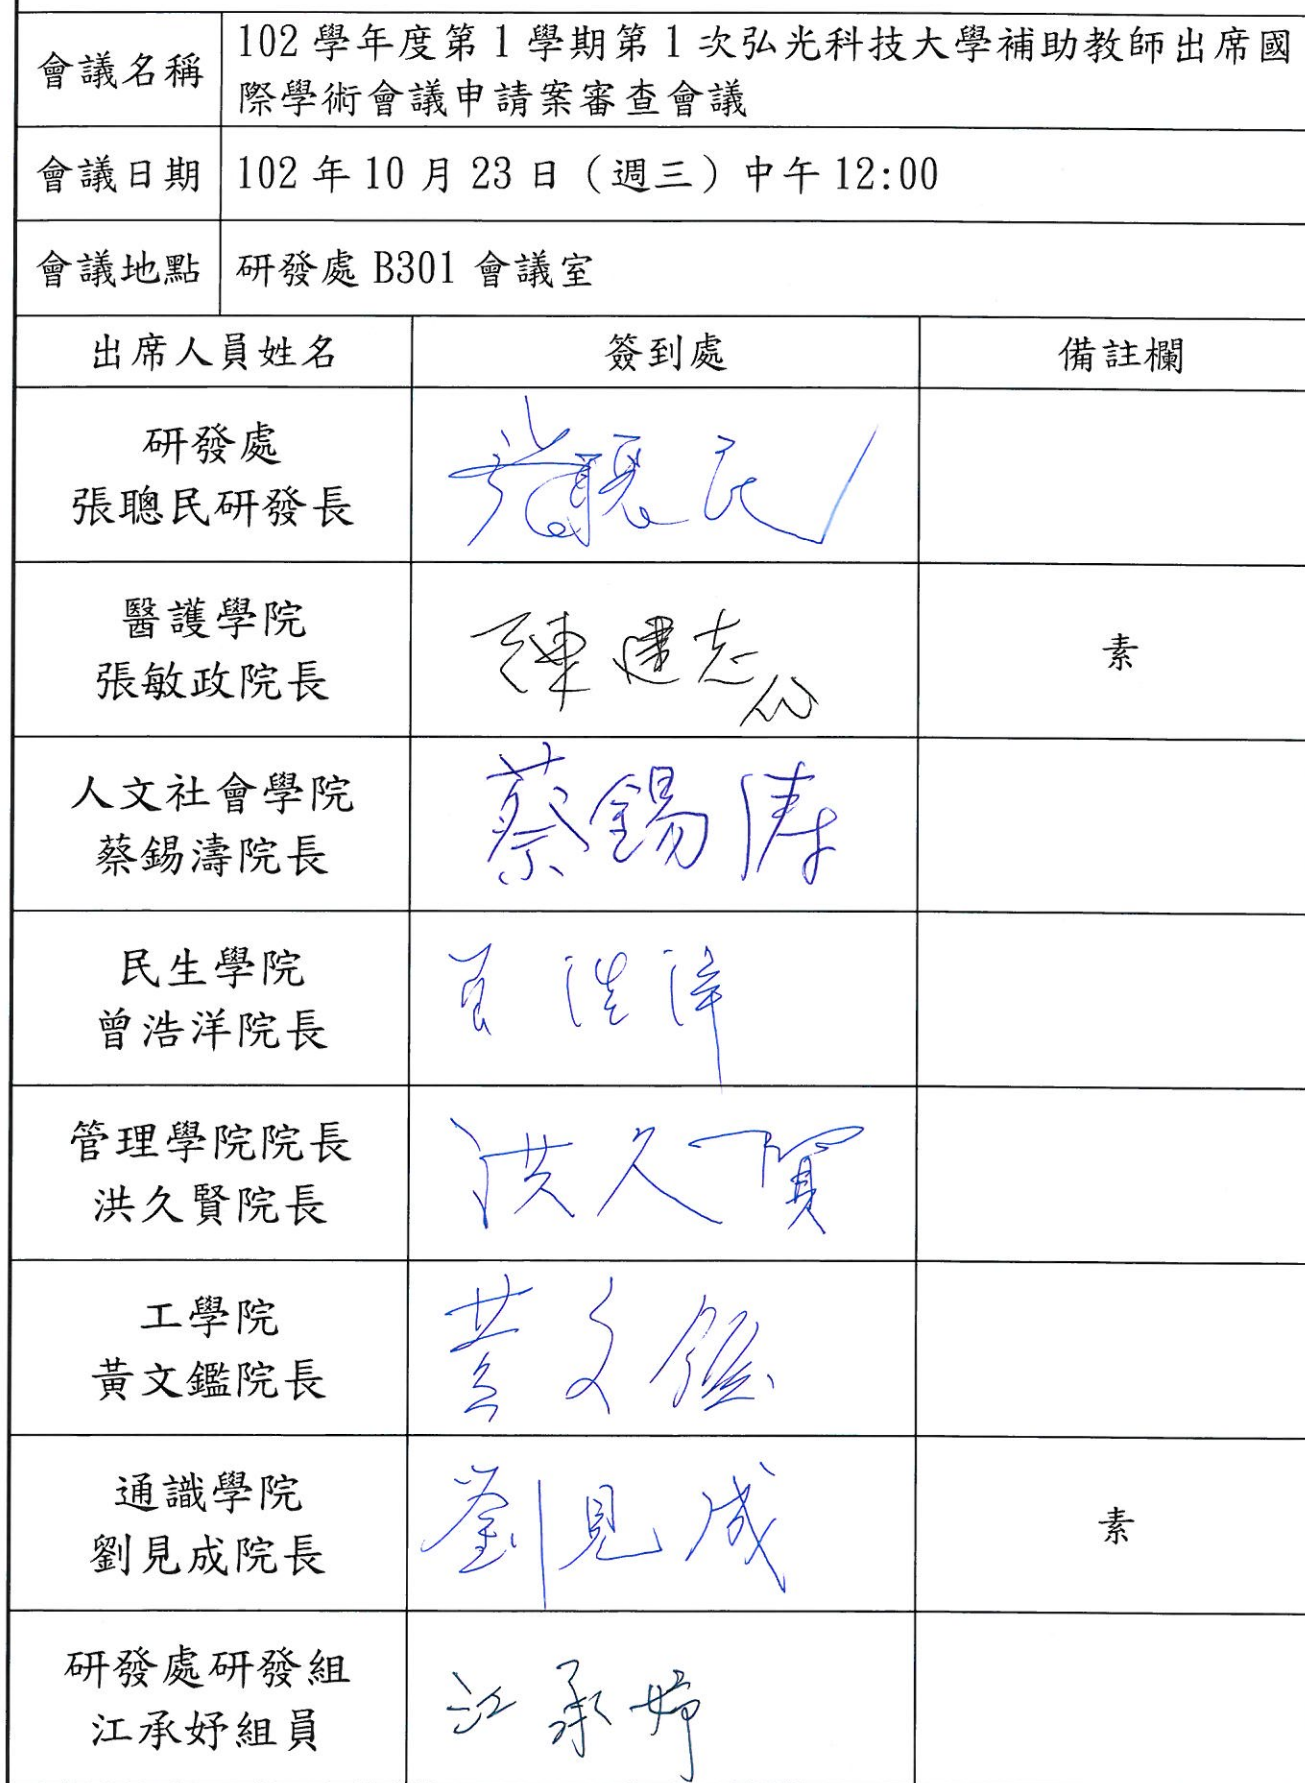 會議名稱
102 學年度第 1 學期第 1 次弘光科技大學補助教師出席國
際學術會議申請案審查會議
會議日期
102 年 10 月 23 日（週三）中午 12:00
會議地點
研發處 B301 會議室
出席人員姓名 簽到處 備註欄
研發處
張聰民研發長
張聰民
醫護學院
張敏政院長
陳建志代
素
人文社會學院
蔡錫濤院長
蔡錫濤
民生學院
曾浩洋院長
曾浩洋
管理學院院長
洪久賢院長
洪久賢
工學院
黃文鑑院長
黃文鑑
通識學院
劉見成院長
劉見成
素
研發處研發組
江承妤組員
江承妤